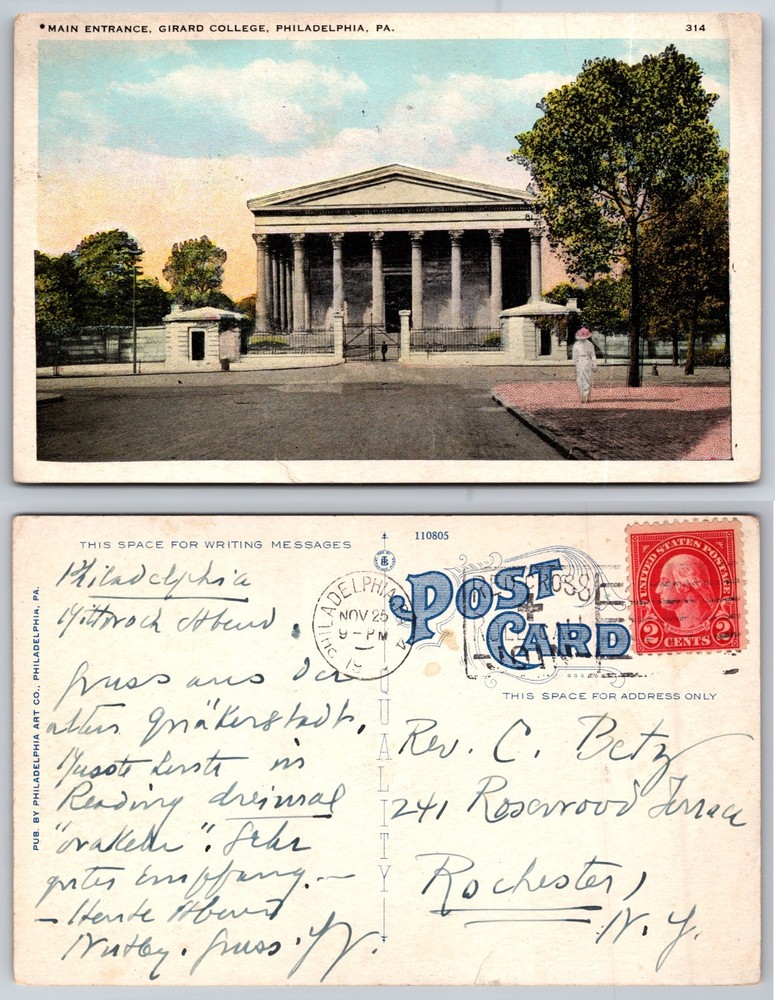 MAIN ENTRANCE, GIRARD COLLEGE, PHILADELPHIA, PA.
314
THIS SPACE FOR WRITING MESSAGES
110805
PUB. BY PHILADELPHIA ART CO., PHILADELPHIA, PA.
Philadelphia
Mittwoch Abend.
Gruss aus der
alten Quäkerstadt,
in
Reading dreimal
"orakeln". Sehr
guter Empfang. —
— Heute Abend
Nutley. Gruss.
QUALITY
PHILADELPHIA
NOV 25
9 - PM
POST
CARD
RED CROSS
UNITED STATES POSTAGE
2 CENTS 2
THIS SPACE FOR ADDRESS ONLY
Rev. C. Betz
241 Rosewood Terrace
Rochester,
N. Y.